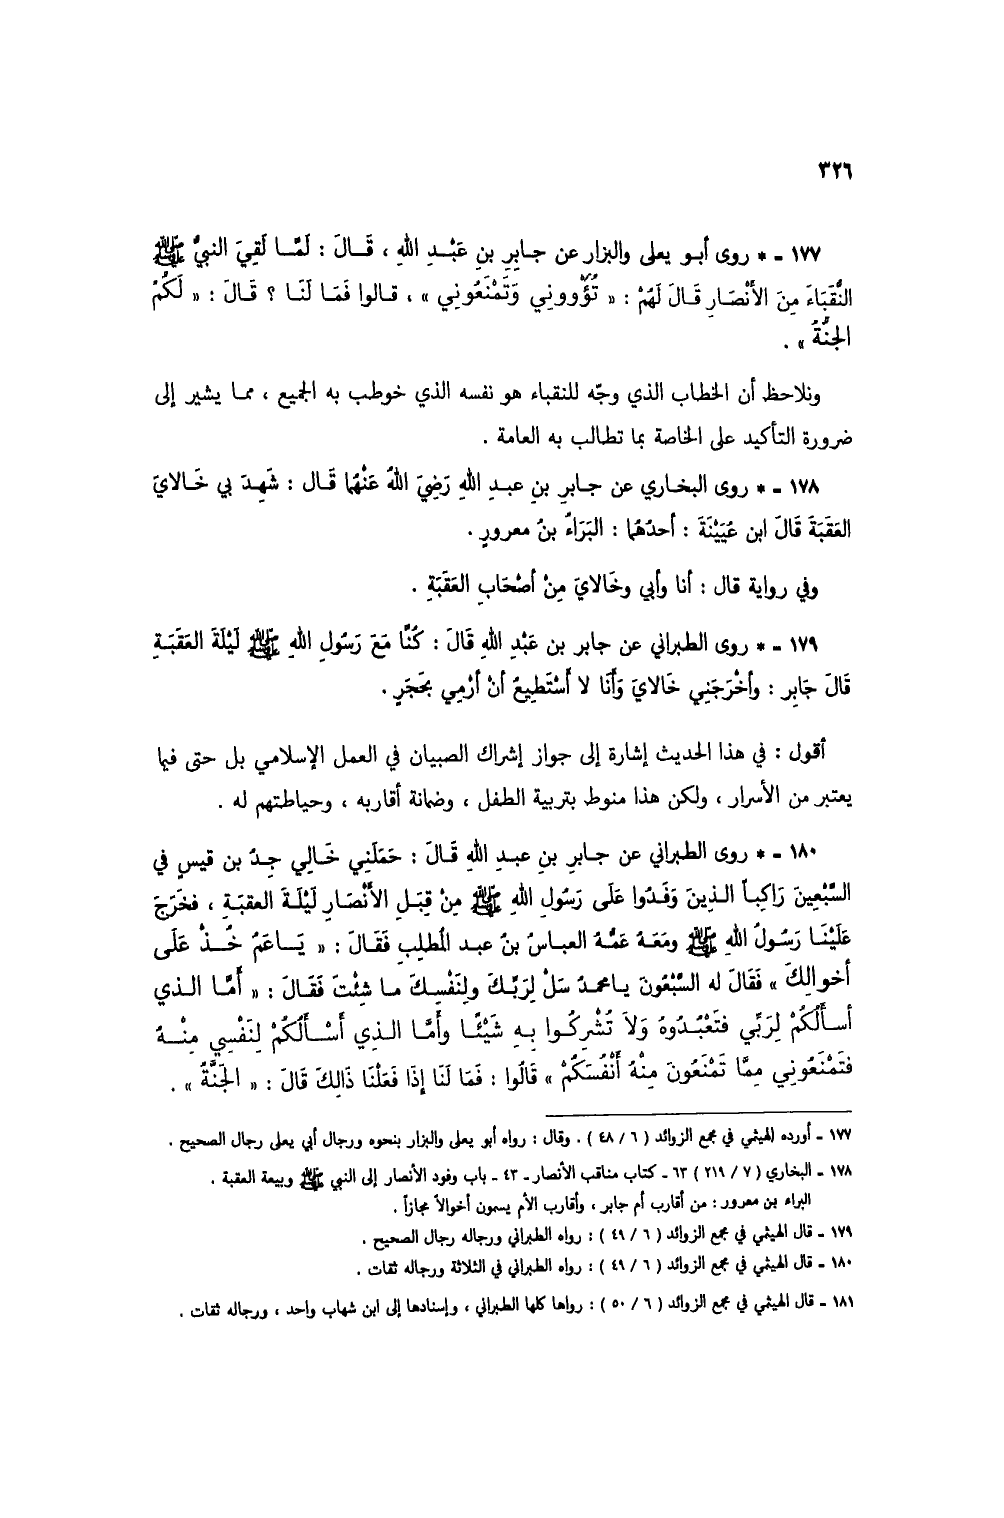 ٣٢٦
١٧٧ - * روى أبـو يعلى والبزار عن جـابرِ بنِ عَبْـدِ اللهِ ، قَـالَ : لَمَّـا لَقِيَ النبيُّ ﷺ
النُّقَبَاءَ مِنَ الأَنْصَـارِ قَـالَ لَهُمْ : « تُؤْوونِي وَتَمْنَعُونِي » ، قـالوا فَمَـا لَنَـا ؟ قَـالَ : « لَكُمُ
الجنَّةُ » .
ونلاحظ أن الخطاب الذي وجّه للنقباء هو نفسه الذي خوطب به الجميع ، ممـا يشير إلى
ضرورة التأكيد على الخاصة بما تطالب به العامة .
١٧٨ - * روى البخـاري عن جـابرِ بنِ عبـدِ اللهِ رَضِيَ اللهُ عَنْهُمَا قَـال : شَهِـدَ بي خَـالايَ
العَقَبَةَ قَالَ ابن عُيَيْنَةَ : أحدُهُما : البَرَاءُ بنُ معرورٍ .
وفي رواية قال : أنا وأبي وخَالايَ مِنْ أصْحَابِ العَقَبَةِ .
١٧٩ - * روى الطبراني عن جابر بن عَبْدِ اللهِ قَالَ : كُنَّا مَعَ رَسُولِ اللهِ ﷺ لَيْلَةَ العَقَبَـةِ
قَالَ جَابِر : وأخْرَجَنِي خَالايَ وَأَنَا لا أَسْتَطِيعُ أنْ أرْمِي بحَجَرٍ .
أقول : في هذا الحديث إشارة إلى جواز إشراك الصبيان في العمل الإسلامي بل حتى فيما
يعتبر من الأسرار ، ولكن هذا منوط بتربية الطفل ، وضمانة أقاربه ، وحياطتهم له .
١٨٠ - * روى الطبراني عن جـابرِ بنِ عبـدِ اللهِ قَـالَ : حَمَلَنِي خَـالِي جـدُ بن قيسٍ في
السَّبْعِينَ رَاكِبـاً الـذِينَ وَفَـدُوا عَلَى رَسُولِ اللهِ ﷺ مِنْ قِبَـلِ الأَنْصَـارِ لَيْلَـةَ العقبَـةِ ، فخَرَجَ
عَلَيْنَـا رَسُـولُ اللهِ ﷺ ومَعَـهُ عَمُّـهُ العبـاسُ بنُ عبـد المُطلبِ فَقَـالَ : « يَـاعَمُ خُـذْ عَلَى
أخوالِكَ » فَقَالَ له السَّبْعُونَ يـامحمدُ سَلْ لِرَبِّـكَ ولِنَفْسِـكَ مـا شِئْتَ فَقَـالَ : « أَمَّـا الـذي
أسـأَلُكُمْ لِرَبِّي فتَعْبُـدُوهُ وَلاَ تُشْرِكُـوا بِـهِ شَيْئًـا وأَمَّـا الـذِي أَسْـأَلُكُمْ لِنَفْسِي مِنْـهُ
فتَمْنَعُونِي مِمَّا تَمْنَعُونَ مِنْهُ أَنْفُسَكُمْ » قَالُوا : فَمَا لَنَا إِذَا فَعَلْنَا ذَالِكَ قَالَ : « الجَنَّةُ » .
١٧٧ - أورده الهيثمي في مجمع الزوائد ( ٦ / ٤٨ ) . وقال : رواه أبو يعلى والبزار بنحوه ورجال أبي يعلى رجال الصحيح .
١٧٨ - البخاري ( ٧ / ٢١٩ ) ٦٣ - كتاب مناقب الأنصار - ٤٣ - باب وفود الأنصار إلى النبي ﷺ وبيعة العقبة .
البراء بن معرور : من أقارب أم جابر ، وأقارب الأم يسمون أخوالاً مجازاً .
١٧٩ - قال الهيثمي في مجمع الزوائد ( ٦ / ٤٩ ) : رواه الطبراني ورجاله رجال الصحيح .
١٨٠ - قال الهيثمي في مجمع الزوائد ( ٦ / ٤٩ ) : رواه الطبراني في الثلاثة ورجاله ثقات .
١٨١ - قال الهيثمي في مجمع الزوائد ( ٦ / ٥٠ ) : رواها كلها الطبراني ، وإسنادها إلى ابن شهاب واحد ، ورجاله ثقات .